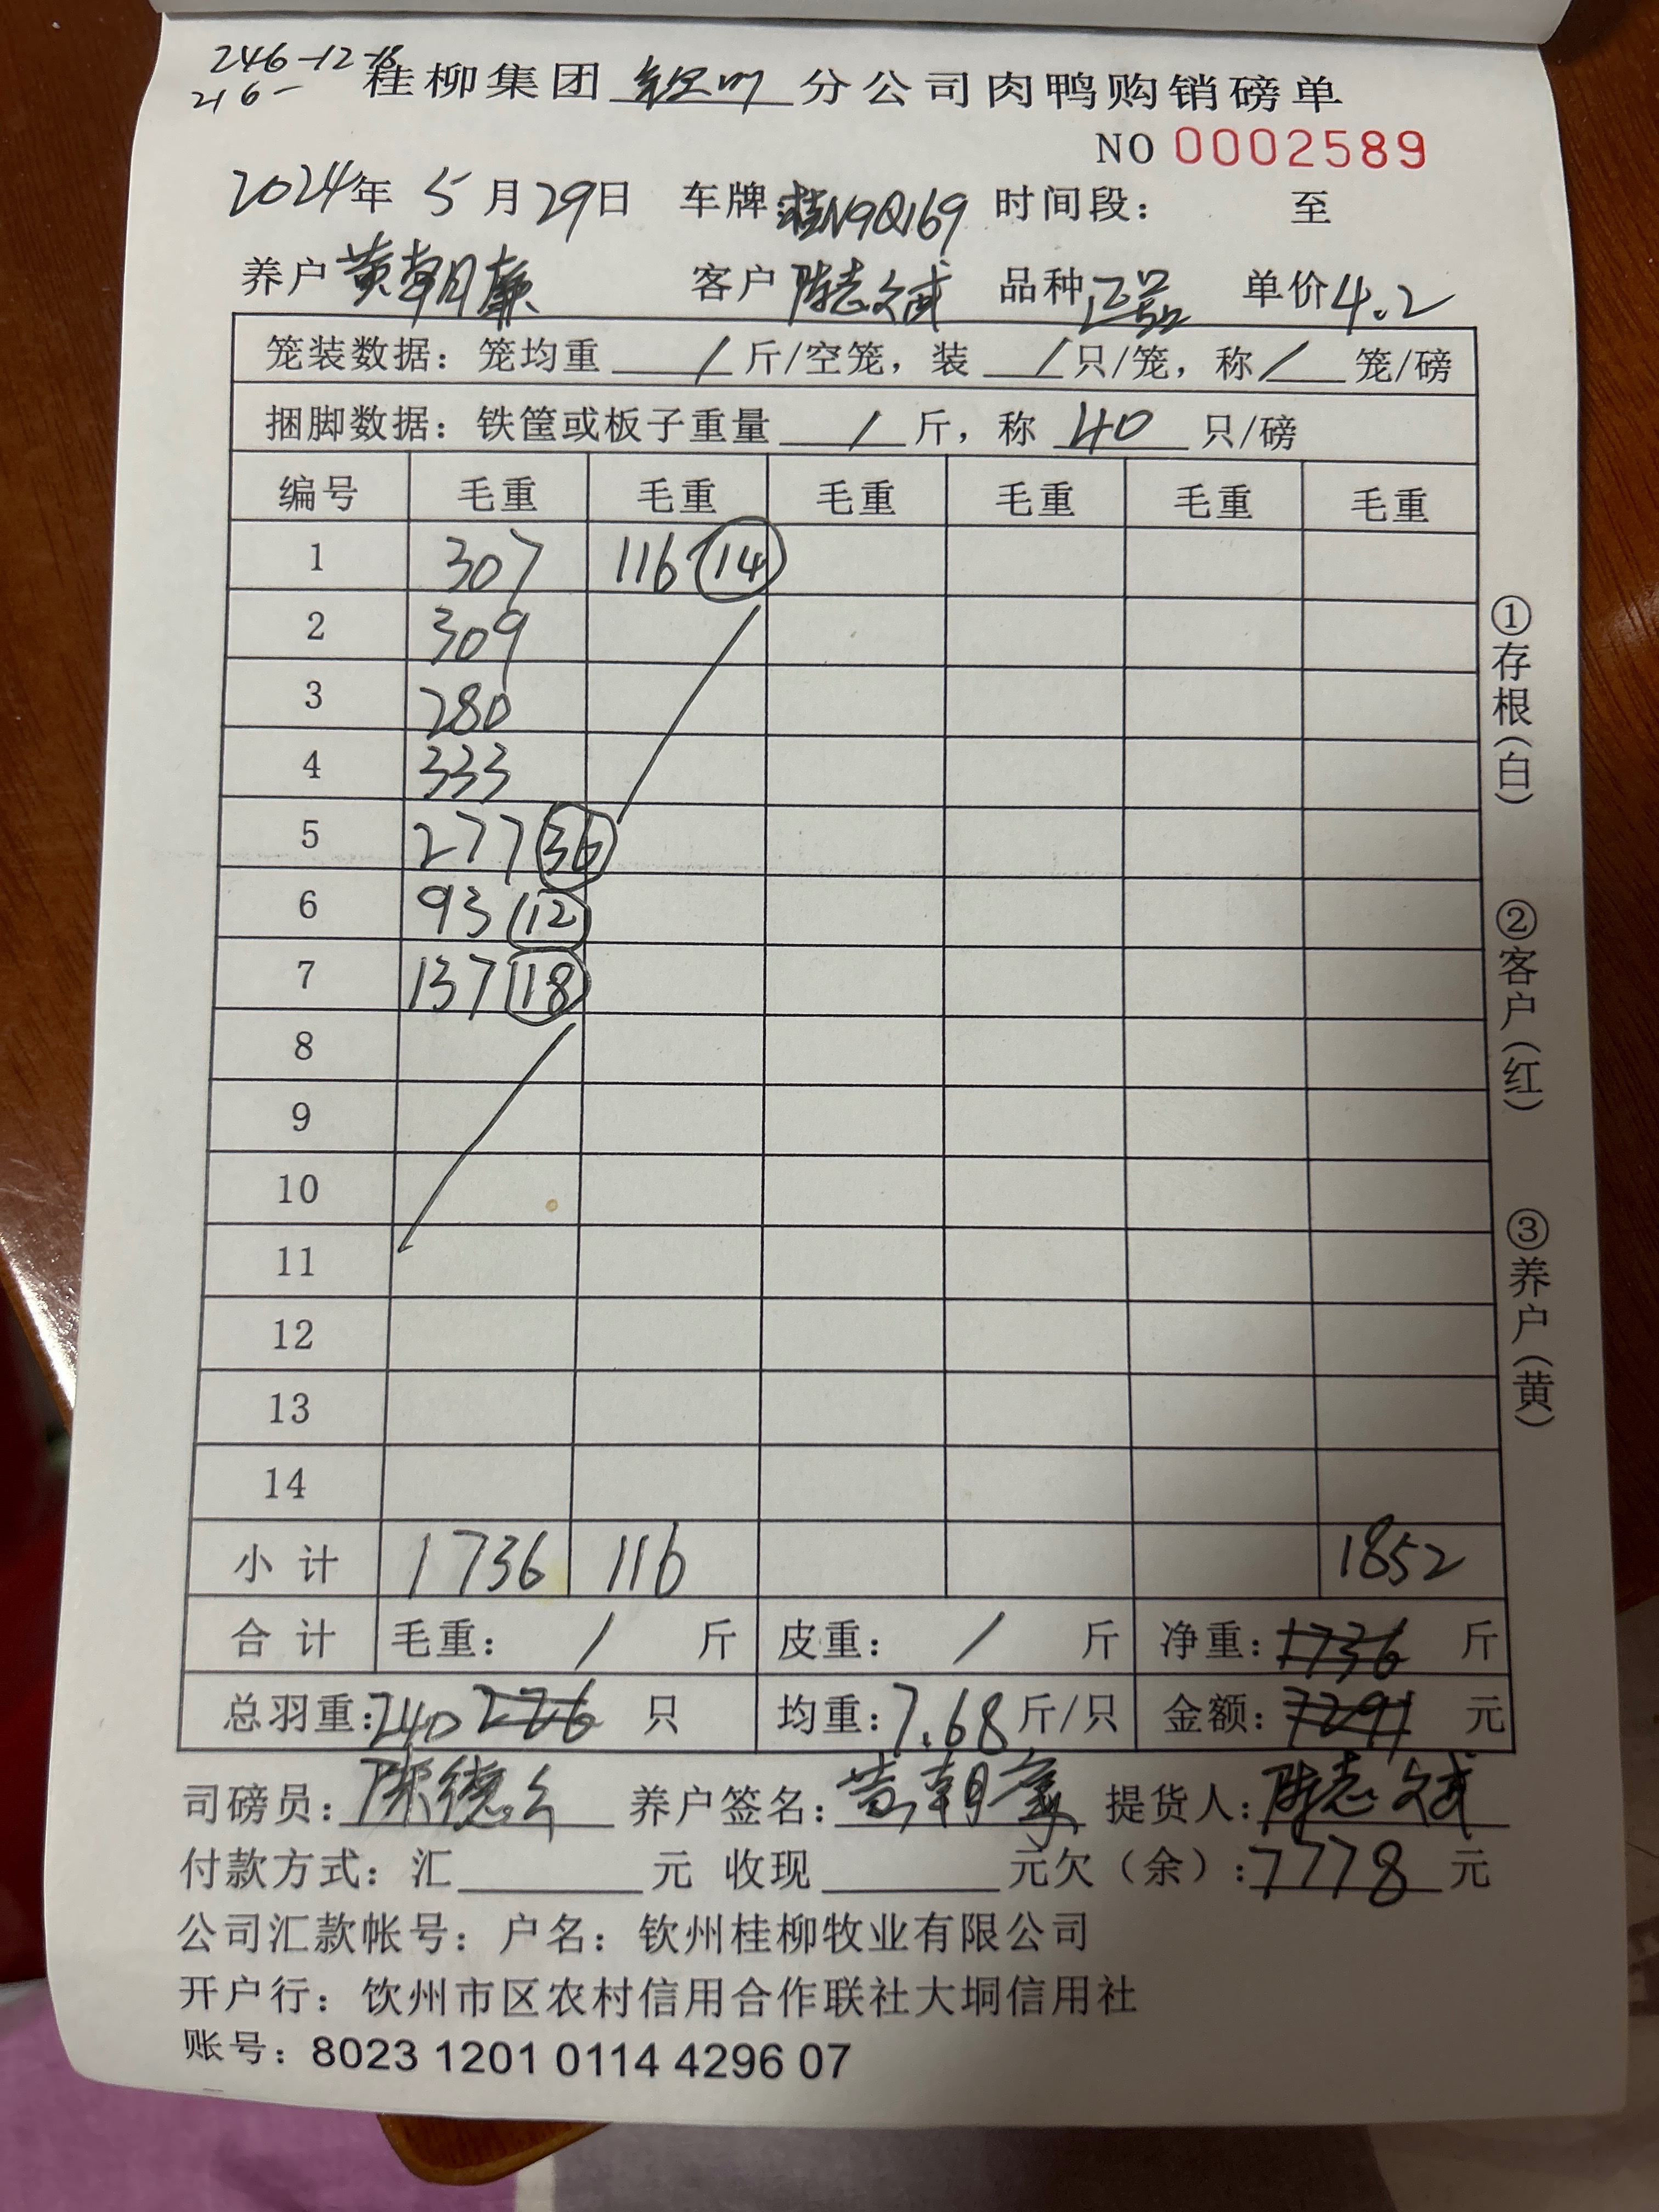 246-12-18
216-
桂柳集团 钦州 分公司肉鸭购销磅单
NO 0002589
2024年 5 月 29日 车牌:桂N9Q169 时间段： 至
养户 黄朝廉 客户 陈志斌 品种 正品 单价 4.2
笼装数据：笼均重 / 斤/空笼，装 / 只/笼，称 / 笼/磅
捆脚数据：铁筐或板子重量 / 斤，称 40 只/磅
编号 毛重 毛重 毛重 毛重 毛重 毛重
1 307 116 14
2 309
3 280
4 333
5 277 36
6 93 12
7 137 18
8
9
10
11
12
13
14
小计 1736 116 1852
合计 毛重： / 斤 皮重： / 斤 净重：1736 斤
总羽重：240 226 只 均重：7.68 斤/只 金额：7291 元
司磅员： 养户签名：黄朝廉 提货人：陈志斌
付款方式：汇 元 收现 元欠（余）：7778 元
公司汇款帐号：户名：钦州桂柳牧业有限公司
开户行：饮州市区农村信用合作联社大垌信用社
账号：8023 1201 0114 4296 07
①存根（白） ②客户（红） ③养户（黄）